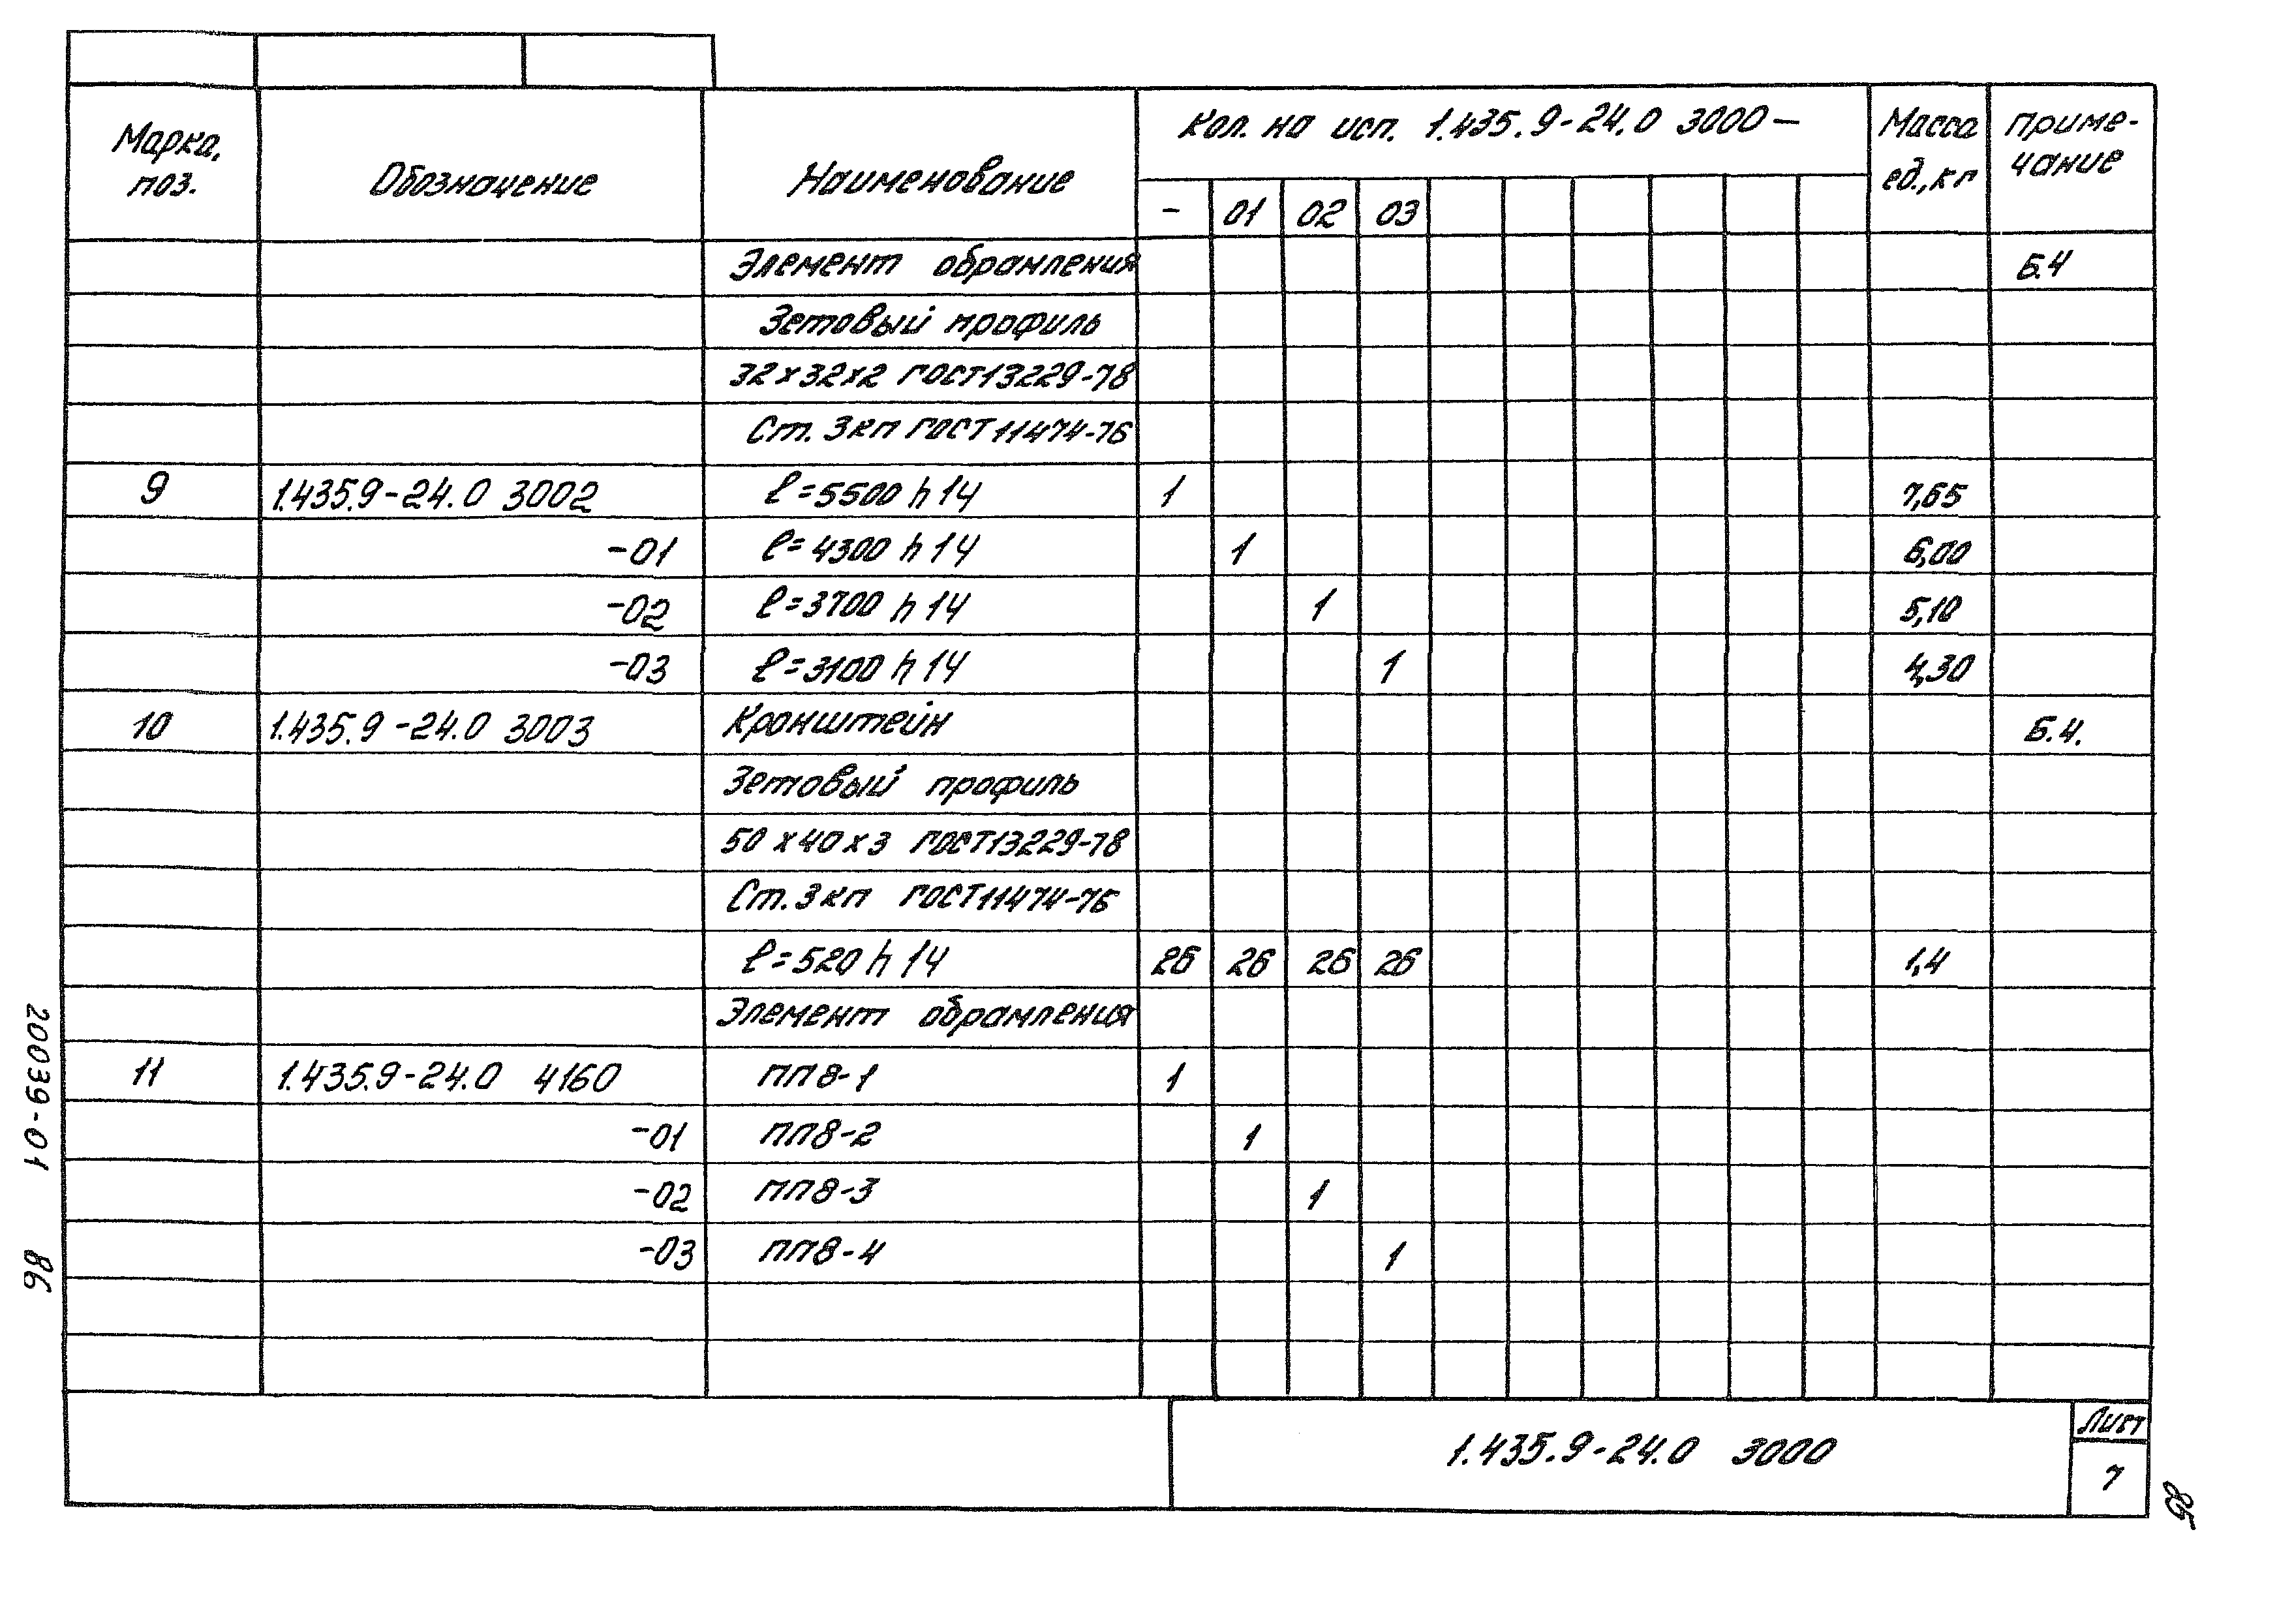 Марка, поз. Обозначение Наименование Кол. на исп. 1.435.9-24.0 3000— Масса ед., кг Приме-чание
- 01 02 03
Элемент обрамления Б.Ч
Зетовый профиль
32х32х2 ГОСТ13229-78
Ст. 3кп ГОСТ11474-76
9 1.435.9-24.0 3002 ℓ=5500 h14 1 7,65
-01 ℓ=4300 h14 1 6,00
-02 ℓ=3700 h14 1 5,10
-03 ℓ=3100 h14 1 4,30
10 1.435.9-24.0 3003 Кронштейн Б.Ч.
Зетовый профиль
50х40х3 ГОСТ13229-78
Ст. 3кп ГОСТ11474-76
ℓ=520 h14 26 26 26 26 1,4
Элемент обрамления
11 1.435.9-24.0 4160 ПП8-1 1
-01 ПП8-2 1
-02 ПП8-3 1
-03 ПП8-4 1
1.435.9-24.0 3000
Лист
7
20039-01 86
85